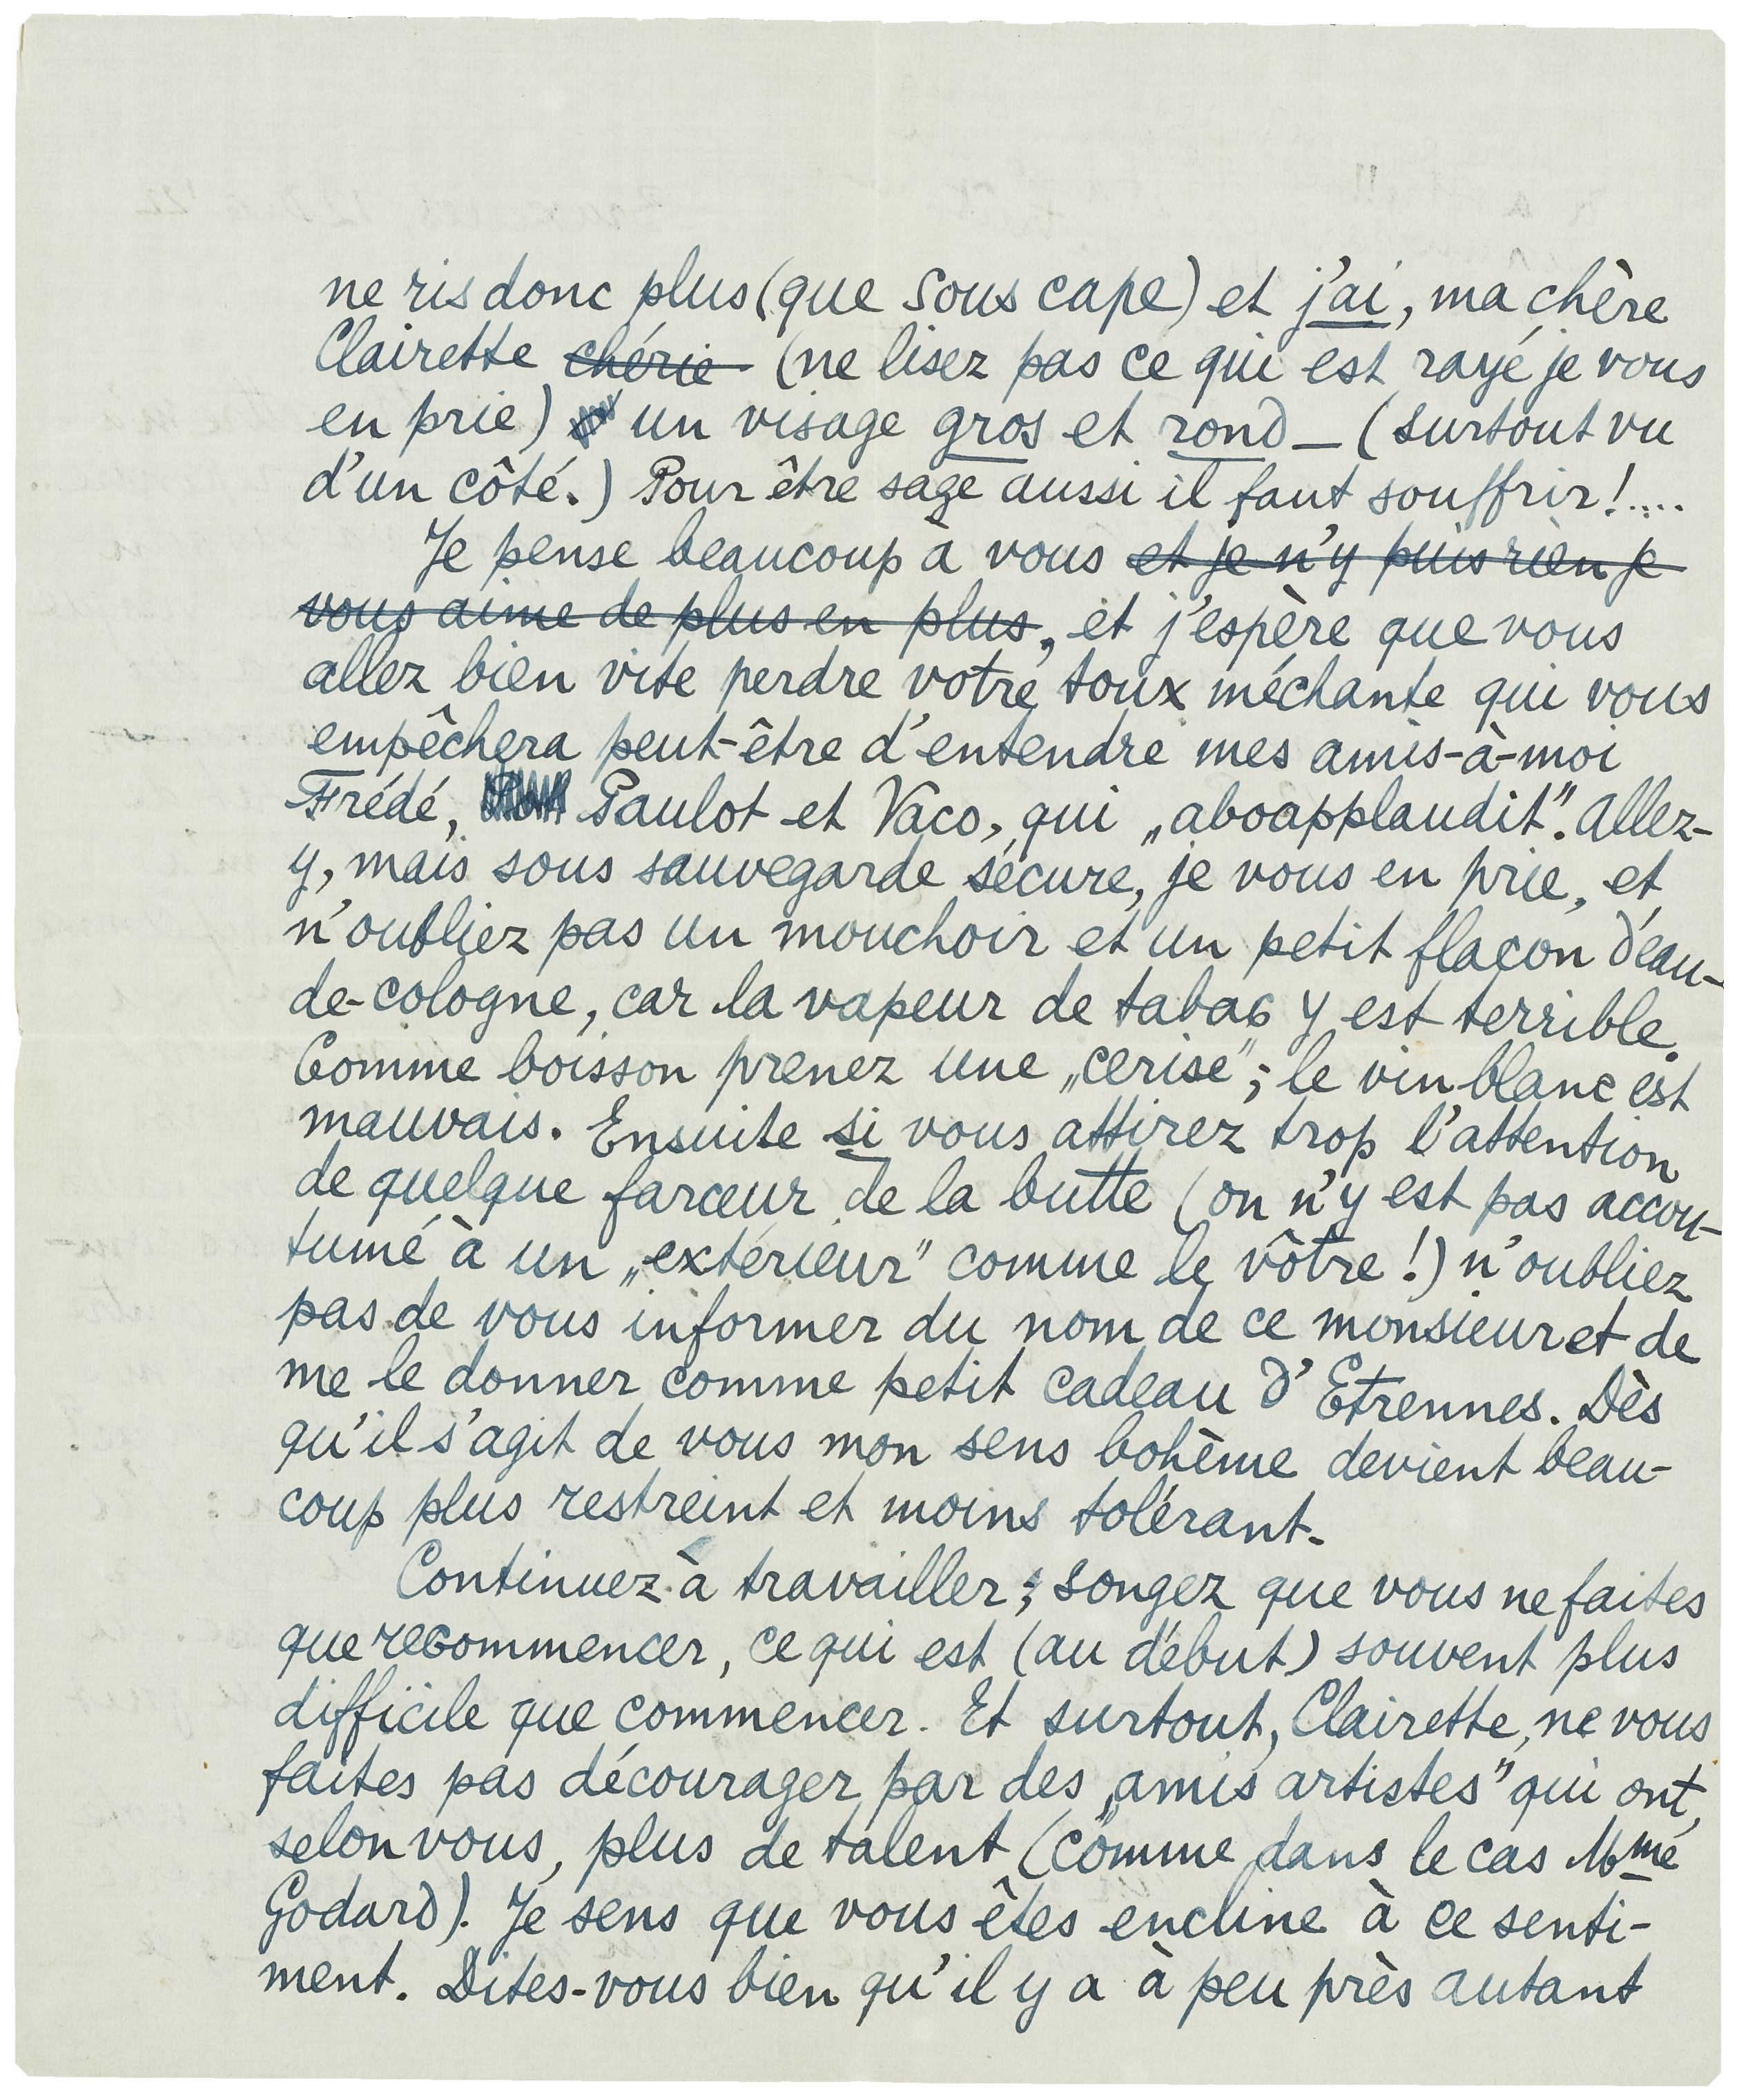 ne ris donc plus (que sous cape) et j'ai, ma chère
Clairette chérie (ne lisez pas ce qui est rayé je vous
en prie) un visage gros et rond — (surtout vu
d'un côté.) Pour être sage aussi il faut souffrir!....
Je pense beaucoup à vous et je n'y puis rien je
vous aime de plus en plus, et j'espère que vous
allez bien vite perdre votre toux méchante qui vous
empêchera peut-être d'entendre mes amis-à-moi
Frédé, Paulot et Vaco, qui „aboapplaudit". Allez-
y, mais sous sauvegarde sécure, je vous en prie, et
n'oubliez pas un mouchoir et un petit flaçon d'eau-
de-cologne, car la vapeur de tabac y est terrible.
Comme boisson prenez une „cerise"; le vin blanc est
mauvais. Ensuite si vous attirez trop l'attention
de quelque farceur de la butte (on n'y est pas accou-
tumé à un „extérieur" comme le vôtre!) n'oubliez
pas de vous informer du nom de ce monsieur et de
me le donner comme petit cadeau d'Etrennes. Dès
qu'il s'agit de vous mon sens bohême devient beau-
coup plus restreint et moins tolérant.
Continuez à travailler; songez que vous ne faites
que recommencer, ce qui est (au début) souvent plus
difficile que commencer. Et surtout, Clairette, ne vous
faites pas décourager par des „amis artistes" qui ont,
selon vous, plus de talent (comme dans le cas Mme
Godard). Je sens que vous êtes encline à ce senti-
ment. Dites-vous bien qu'il y a à peu près autant